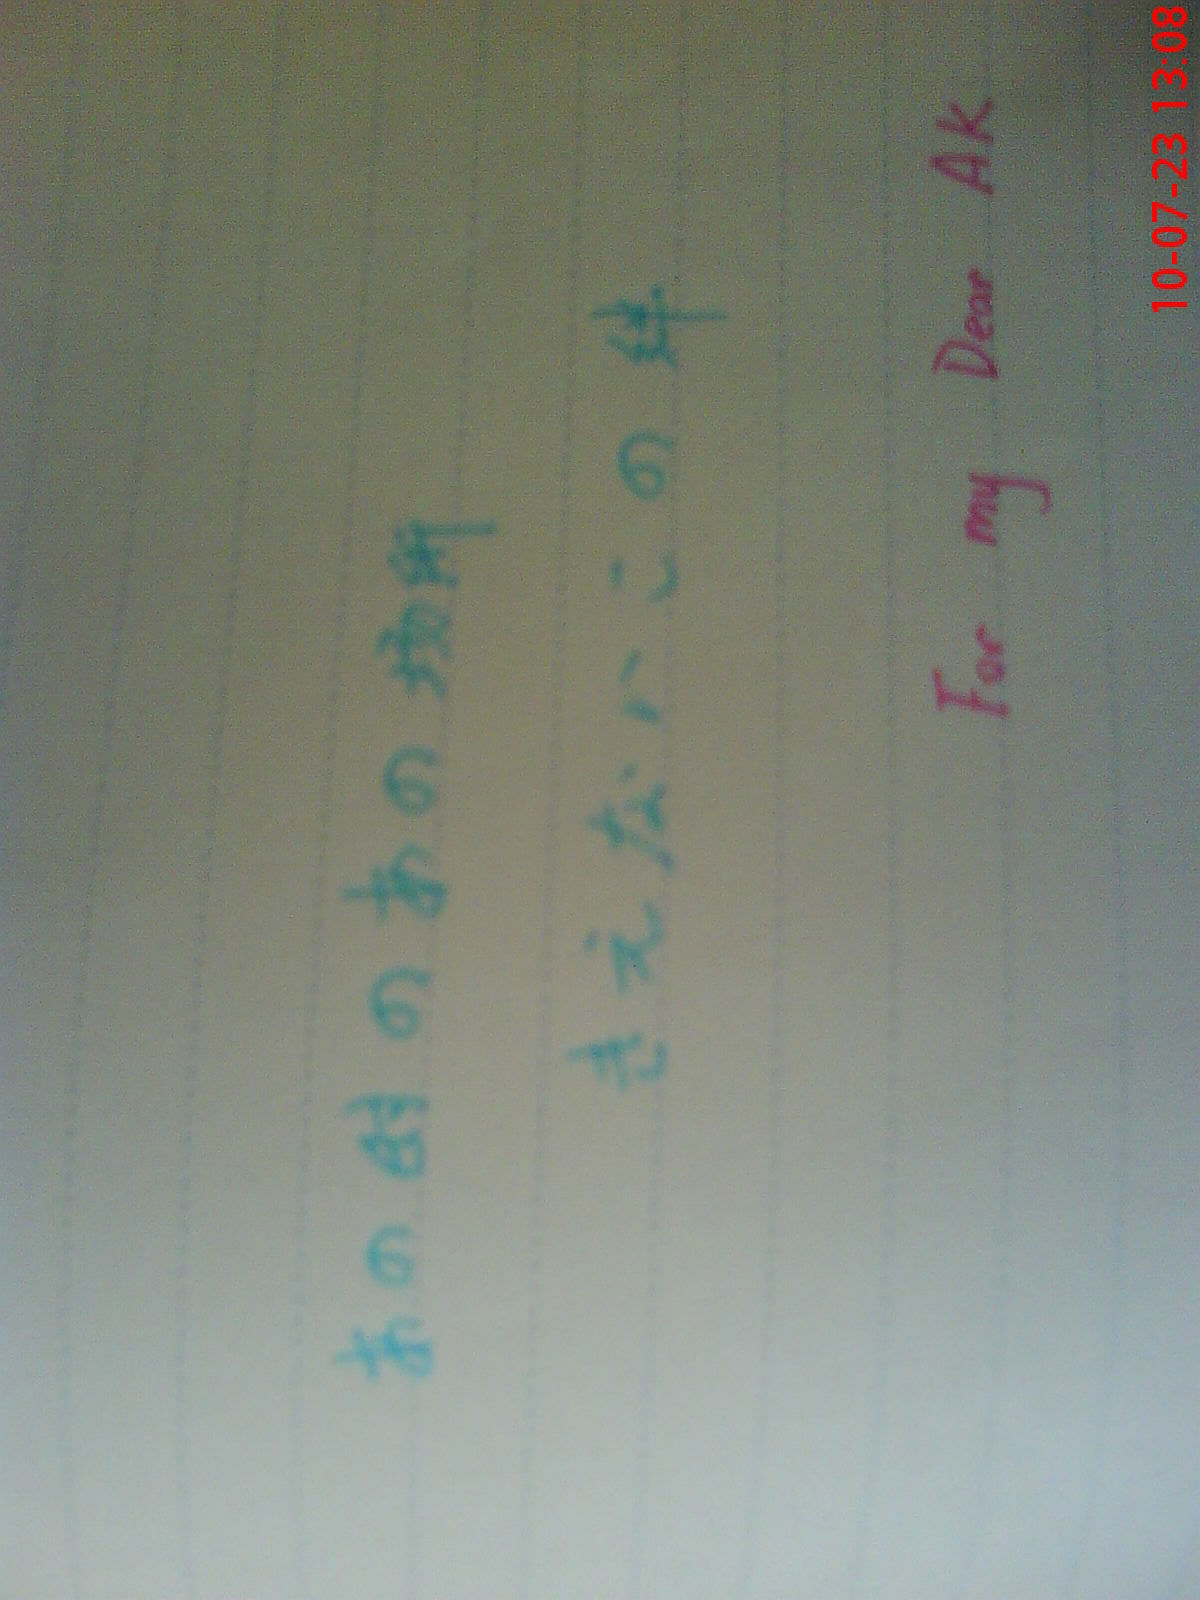 あの時のあの場所
きえないこの絆
For my Dear AK
10-07-23 13:08